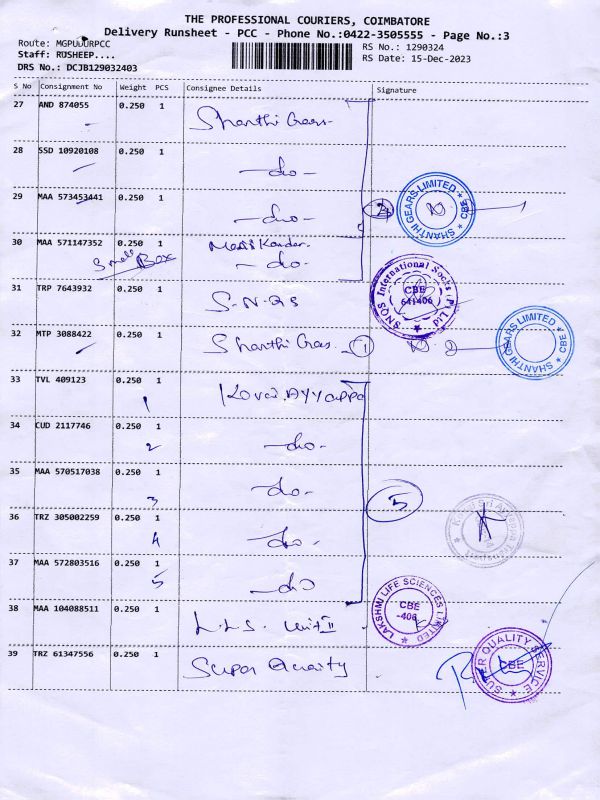 THE PROFESSIONAL COURIERS, COIMBATORE
Delivery Runsheet - PCC - Phone No.:0422-3505555 - Page No.:3
Route: MGPUUURPCC
RS No.: 1290324
Staff: RUSHEEP....
RS Date: 15-Dec-2023
DRS No.: DCJB129032403
S No Consignment No Weight PCS Consignee Details Signature
27 AND 874055 0.250 1 Shanthi Gears-
28 SSD 10920108 0.250 1 -do-
29 MAA 573453441 0.250 1 -do-
SHANTHI GEARS LIMITED * CBE *
30 MAA 571147352 0.250 1
Small Box -do-
31 TRP 7643932 0.250 1 S.N.Q.S
SNQS International Socks (P) Ltd
CBE
641406
32 MTP 3088422 0.250 1 Shanthi Gears. 1
SHANTHI GEARS LIMITED * CBE *
33 TVL 409123 0.250 1 Kovai Ayyappa
1
34 CUD 2117746 0.250 1 -do-
2
35 MAA 570517038 0.250 1 -do-
3
5
36 TRZ 305002259 0.250 1 -do-
4
37 MAA 572803516 0.250 1 -do
5
38 MAA 104088511 0.250 1 L.L.S. Unit II
LAKSHMI LIFE SCIENCES LIMITED
CBE
-406
39 TRZ 61347556 0.250 1 Super Quality
SUPER QUALITY SERVICE
CBE